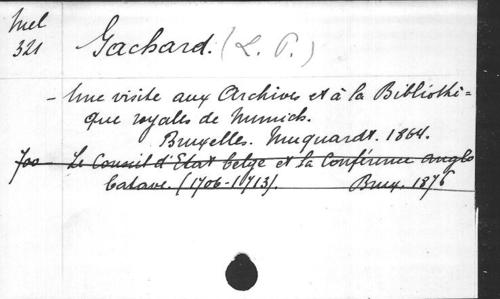 Mel
321
Gachard. (L. P.)
- Une visite aux Archives et à la Bibliothè-
que royales de Munich.
Bruxelles. Muquardt. 1864.
700 Le Conseil d'Etat belge et la Conférence anglo
batave. (1706-1713). Brux. 1876